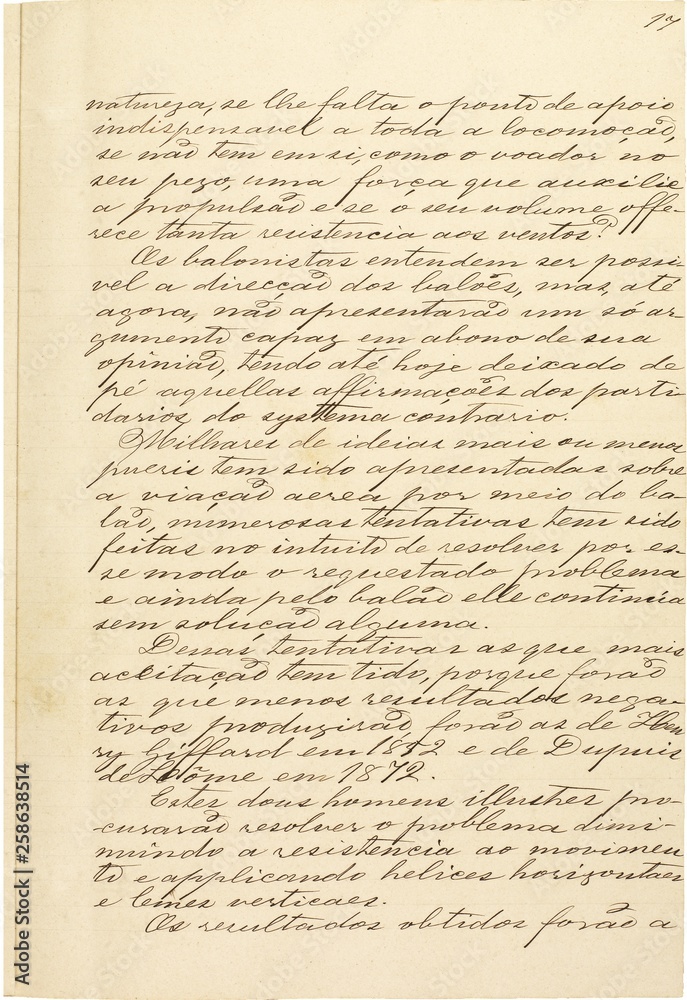 17
natureza, se lhe falta o ponto de apoio
indispensavel a toda a locomoção,
se não tem em si, como o voador no
seu pezo, uma força que auxilie
a propulsão e se o seu volume offe-
rece tanta resistencia aos ventos?
Os balonistas entendem ser possi-
vel a direcção dos balões, mas, até
agora, não apresentarão um só ar-
gumento capaz em abono de sua
opinião, tendo até hoje deixado de
pé aquellas affirmações dos parti-
darios do systema contrario.
Milhares de ideias mais ou menos
pueris tem sido apresentadas sobre
a viação aerea por meio do ba-
lão, numerosas tentativas tem sido
feitas no intuito de resolver por es-
se modo o requestado problema
e ainda pelo balão elle continúa
sem solução alguma.
Dessas tentativas as que mais
aceitação tem tido, porque forão
as que menos resultados nega-
tivos produzirão, forão as de Hen-
ry Giffard em 1852 e de Dupuis
de Lôme em 1872.
Estes dous homens illustres pro-
curarão resolver o problema dimi-
nuindo a resistencia ao movimen
to e applicando helices horizontaes
e lemes verticaes.
Os resultados obtidos forão a
Adobe Stock | #258638514